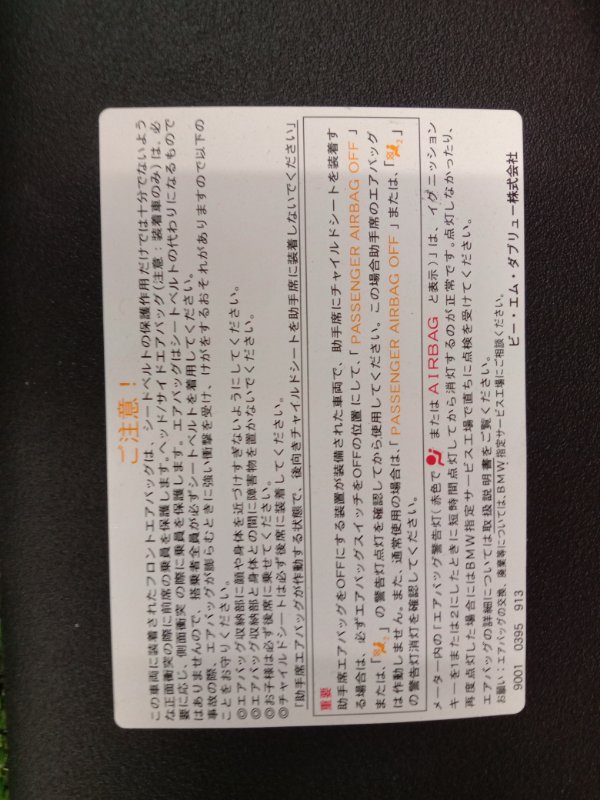 ご注意！
この車両に装着されたフロントエアバッグは、シートベルトの保護作用だけでは十分でないよう
な正面衝突の際に前席の乗員を保護します。ヘッド/サイドエアバッグ(注意：装着車のみ)は、必
要に応じ、側面衝突の際に乗員を保護します。エアバッグはシートベルトの代わりになるもので
はありませんので、搭乗者全員が必ずシートベルトを着用してください。
事故の際、エアバッグが膨らむときに強い衝撃を受け、けがをするおそれがありますので以下の
ことをお守りください。
◎エアバッグ収納部に顔や身体を近づけすぎないようにしてください。
◎エアバッグ収納部と身体との間に障害物を置かないでください。
◎お子様は必ず後席に乗せてください。
◎チャイルドシートは必ず後席に装着してください。
「助手席エアバッグが作動する状態で、後向きチャイルドシートを助手席に装着しないでください」
重要
助手席エアバッグをOFFにする装置が装備された車両で、助手席にチャイルドシートを装着す
る場合は、必ずエアバッグスイッチをOFFの位置にして、「PASSENGER AIRBAG OFF」
または、「2」の警告灯点灯を確認してから使用してください。この場合助手席のエアバッグ
は作動しません。また、通常使用の場合は、「PASSENGER AIRBAG OFF」または、「2」
の警告灯消灯を確認してください。
メーター内の「エアバッグ警告灯(赤色で または AIRBAG と表示)」は、イグニッション
キーを1または2にしたときに短時間点灯してから消灯するのが正常です。点灯しなかったり、
再度点灯した場合にはBMW指定サービス工場で直ちに点検を受けてください。
エアバッグの詳細については取扱説明書をご覧ください。
お願い：エアバッグの交換、廃棄等については、BMW指定サービス工場にご相談ください。
ビー・エム・ダブリュー株式会社
9001 0395 913